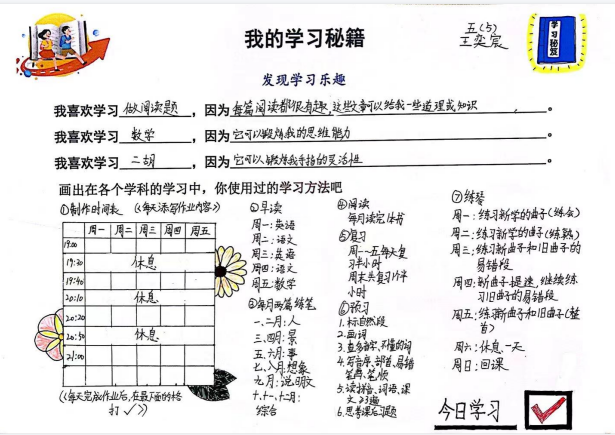 我的学习秘籍
五(5)
王奕宸
学习秘笈
发现学习乐趣
我喜欢学习做阅读题，因为每篇阅读都很有趣，这些文章可以给我一些道理或知识。
我喜欢学习数学，因为它可以锻炼我的思维能力。
我喜欢学习二胡，因为它可以锻炼我手指的灵活性。
画出在各个学科的学习中，你使用过的学习方法吧
①制作时间表 (《每天添写作业内容》)
周一 周二 周三 周四 周五
19:00
19:30 休息
19:40
20:10 休息
20:20
20:50 休息
21:00
(《每天完成作业后，在最下面的格
打✓》)
②早读
周一：英语
周二：语文
周三：英语
周四：语文
周五：数学
③每月两篇练笔
一、二月：人
三、四月：景
五、六月：事
七、八月：想象
九月：说明文
十、十一、十二月：
综合
④阅读
每月读完1本书
⑤复习
周一~五每天复
习半小时
周末共复习1个半
小时
⑥预习
1.标自然段
2.画词
3.查多音字、不懂的词
4.写音序、部首、易错
笔画、笔顺
5.读拼音、词语、课
文2、3遍
6.思考课后习题
⑦练琴
周一：练习新学的曲子(练会)
周二：练习新学的曲子(练熟)
周三：练新曲子和旧曲子的
易错段
周四：新曲子提速，继续练
习旧曲子的易错段
周五：练新曲子和旧曲子(整
首)
周六：休息一天
周日：回课
今日学习